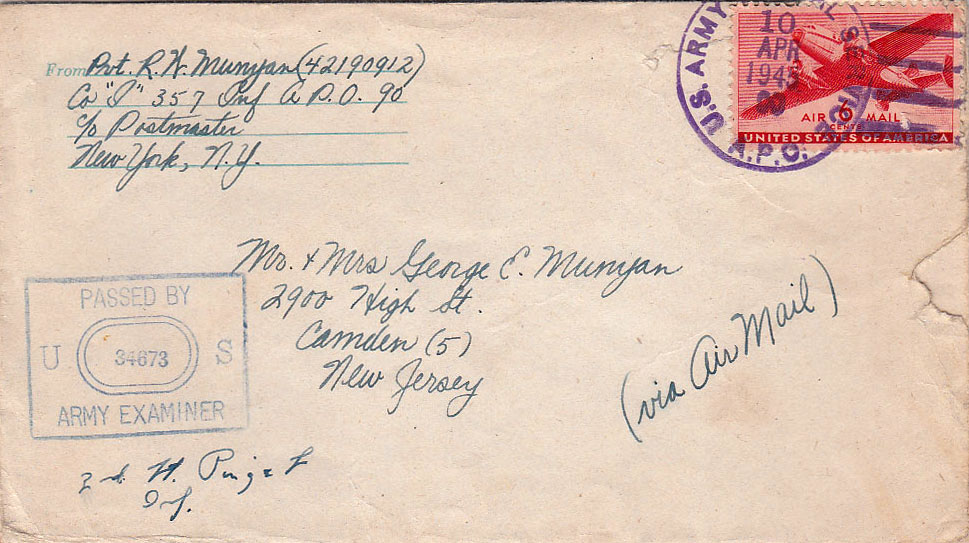 From Pvt. R W Munyan (42190912)
Co "I" 357 Inf A.P.O. 90
c/o Postmaster
New York, N.Y.
U.S. ARMY
10
APR
A.P.O.
AIR 6 MAIL
CENTS
UNITED STATES OF AMERICA
Mr. + Mrs George E. Munyan
2900 High St.
Camden (5)
New Jersey
(via Air Mail)
PASSED BY
U 34673 S
ARMY EXAMINER
Inf.